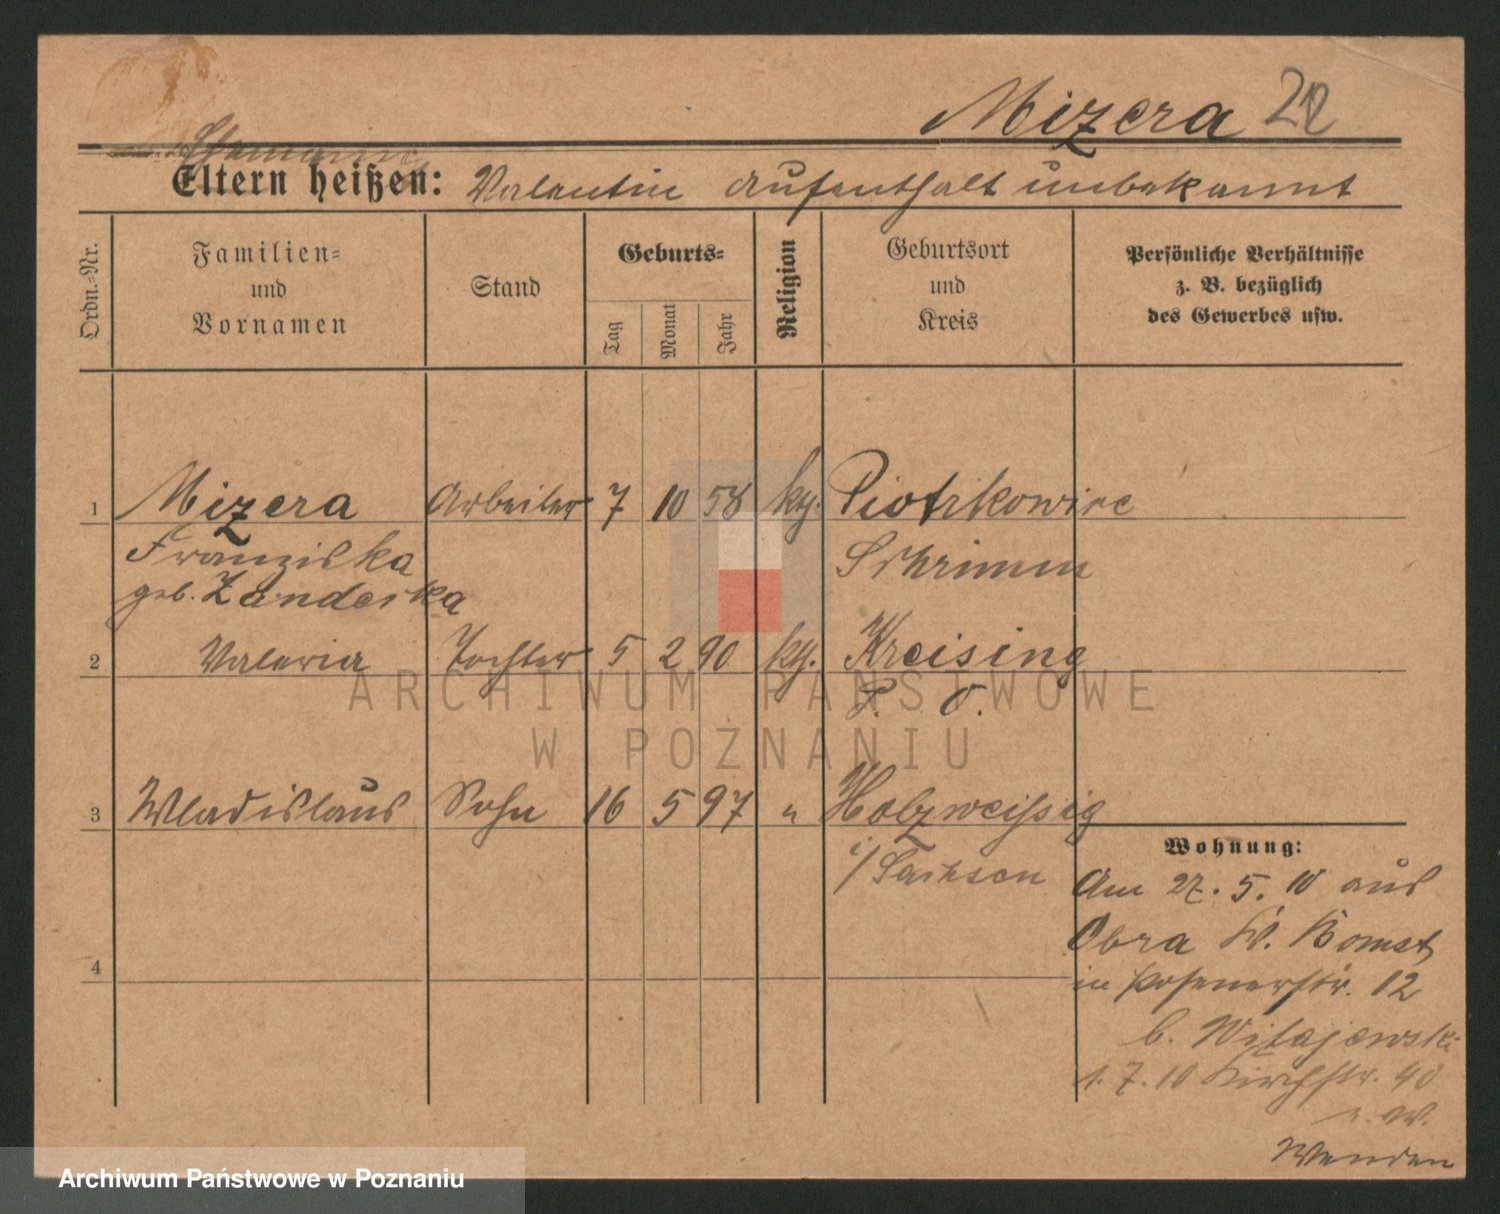 Mizera 22
Ehemann
Eltern heißen: Valentin Aufenthalt unbekannt
Ordn.=Nr.
Familien=
und
Vornamen
Stand
Geburts=
Tag
Monat
Jahr
Religion
Geburtsort
und
Kreis
Persönliche Verhältnisse
z. B. bezüglich
des Gewerbes usw.
1 Mizera Arbeiter 7 10 58 kth. Piotrkowice
Franziska Schrimm
geb. Zanderska
2 Valeria Tochter 5 2 90 kth. Kreising
P. O.
3 Wladislaus Sohn 16 5 97 " Holzweißig
i/ Sachsen
4
Wohnung:
Am 27. 5. 10 aus
Obra K. Bomst
in Posenerstr. 12
b. Witajewski
1. 7. 10 Kirchstr. 40
Wenden
ARCHIWUM PAŃSTWOWE
W POZNANIU
Archiwum Państwowe w Poznaniu